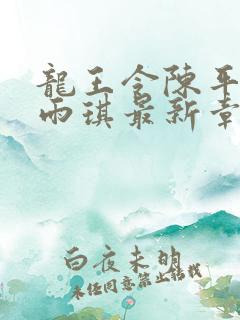 龍王令陳平
雨琪最新章
白夜未明
未经同意禁止转载